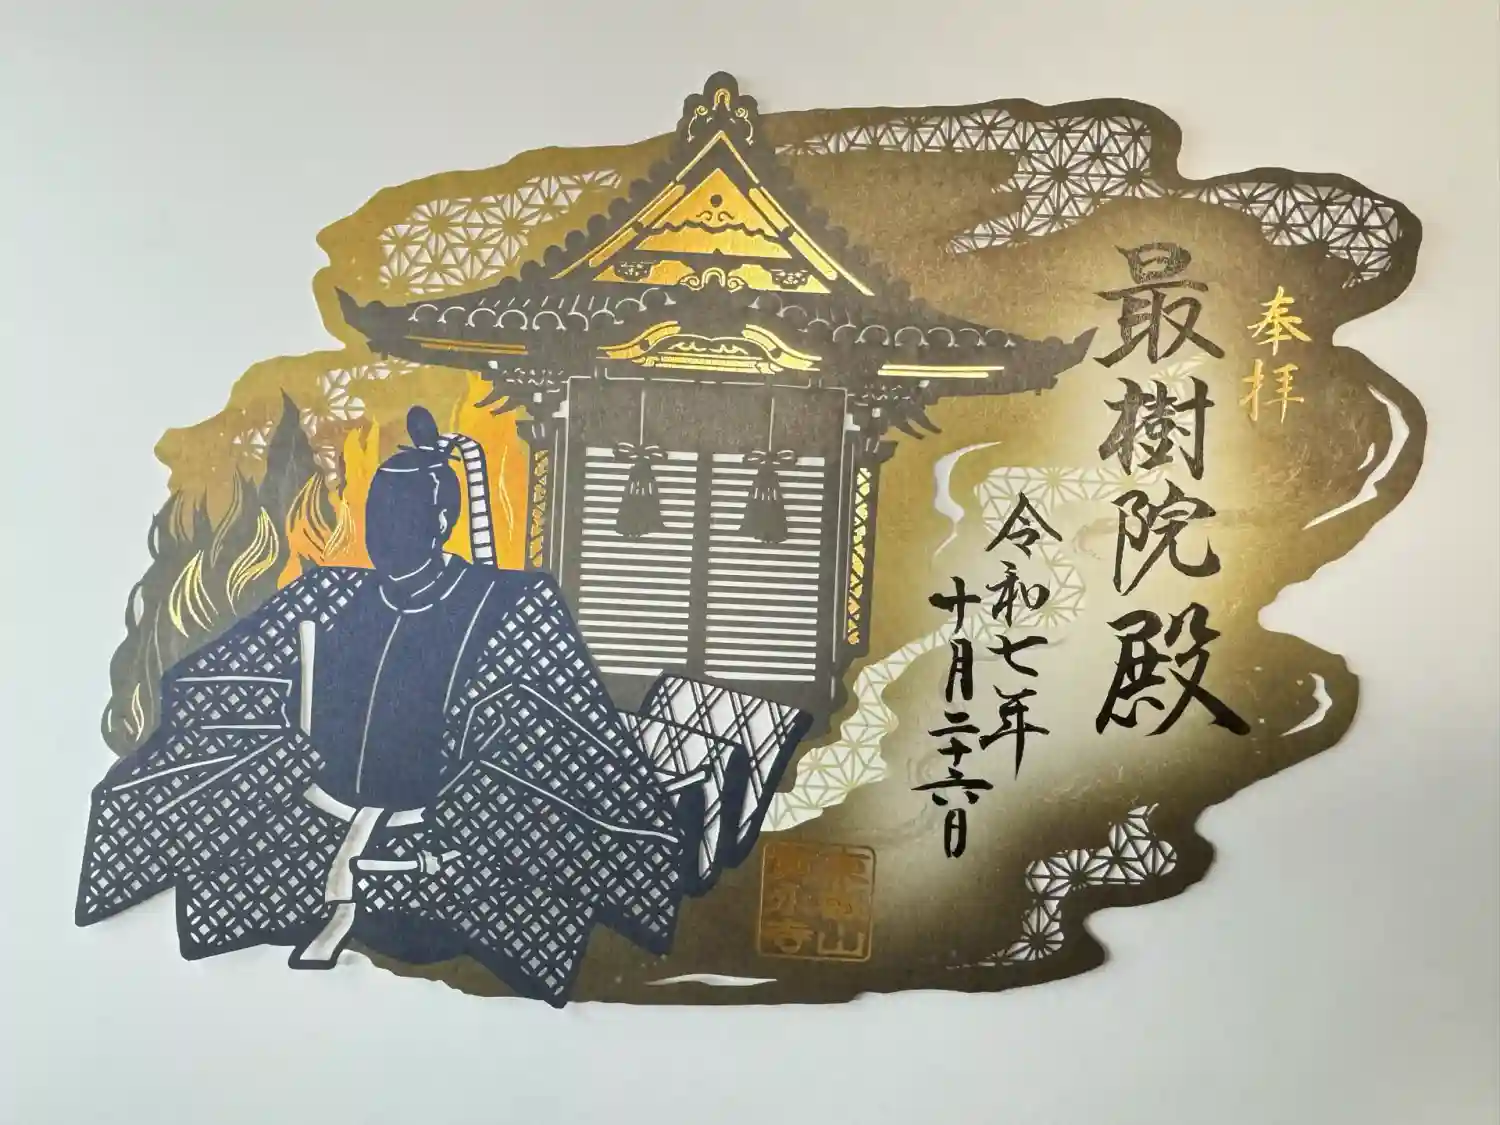 奉拝
最樹院殿
令和七年
十月二十六日
東叡山
寛永寺